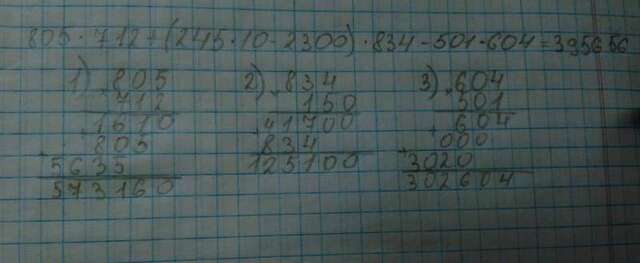 805·712+(245·10-2300)·834-501·604=395656
1) 805 2) 834 3) 604
712 150 501
1610 41700 604
805 834 000
5635 125100 3020
573160 302604